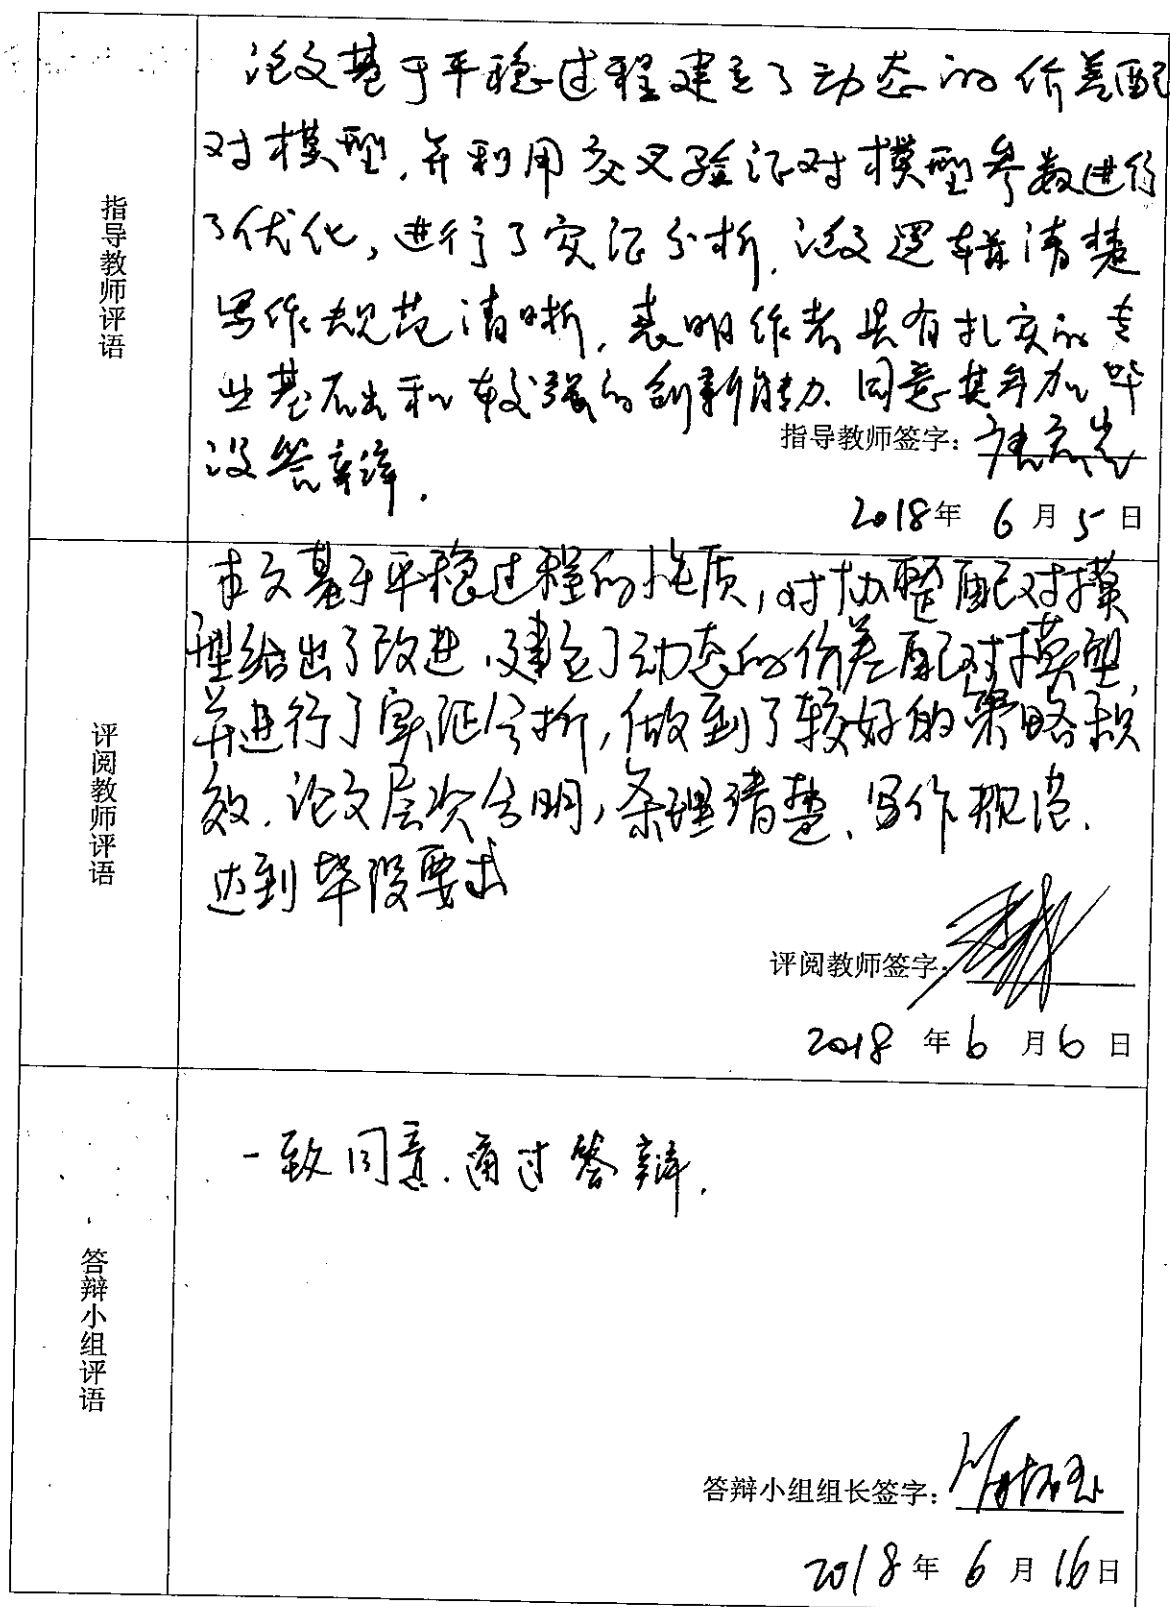 指导教师评语
论文基于平稳过程建立了动态的价差配
对模型,并利用交叉验证对模型参数进行
了优化,进行了实证分析.论文逻辑清楚
写作规范清晰,表明作者具有扎实的专
业基础和较强的创新能力.同意其参加毕
设答辩.
指导教师签字:
2018年 6 月 5 日
评阅教师评语
本文基于平稳过程的性质,对协整配对模
型给出了改进,建立了动态的价差配对模型,
并进行了实证分析,做到了较好的策略积
效.论文层次分明,条理清楚、写作规范.
达到毕设要求
评阅教师签字:
2018 年 6 月 6 日
答辩小组评语
一致同意.通过答辩.
答辩小组组长签字:
2018年 6 月 16日